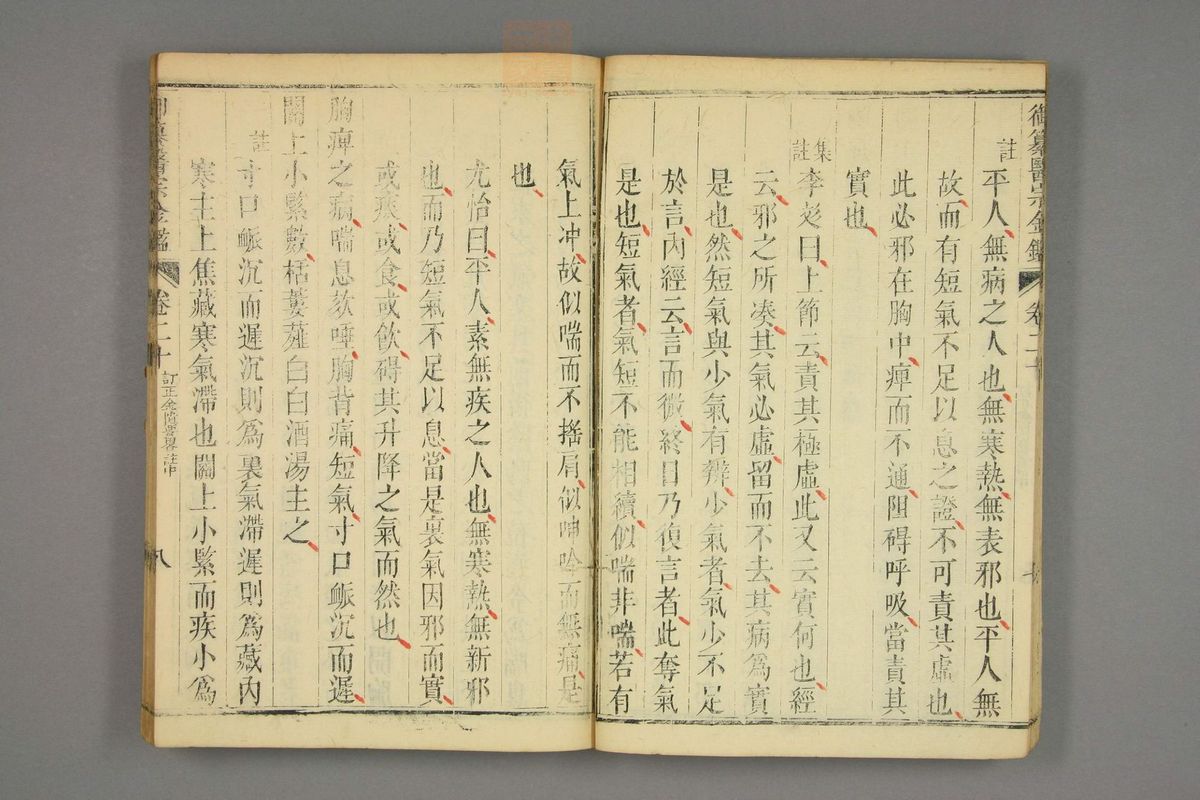 御纂醫宗金鑑 卷二十
註
平人無病之人也無寒熱無表邪也平人無
故而有短氣不足以息之證不可責其虛也
此必邪在胸中痺而不通阻碍呼吸當責其
實也
集註
李彣曰上節云責其極虛此又云實何也經
云邪之所凑其氣必虛留而不去其病爲實
是也然短氣與少氣有辨少氣者氣少不足
於言內經云言而微終日乃復言者此奪氣
是也短氣者氣短不能相續似喘非喘若有
氣上冲故似喘而不搖肩似呻吟而無痛是
也
尤怡曰平人素無疾之人也無寒熱無新邪
也而乃短氣不足以息當是裏氣因邪而實
或痰或食或飲碍其升降之氣而然也
胸痺之病喘息欬唾胸背痛短氣寸口脈沉而遲
關上小緊數栝蔞薤白白酒湯主之
註
寸口脈沉而遲沉則爲裏氣滯遲則爲藏內
寒主上焦藏寒氣滯也關上小緊而疾小爲
御纂醫宗金鑑 卷二十 訂正金匱要畧註中 八